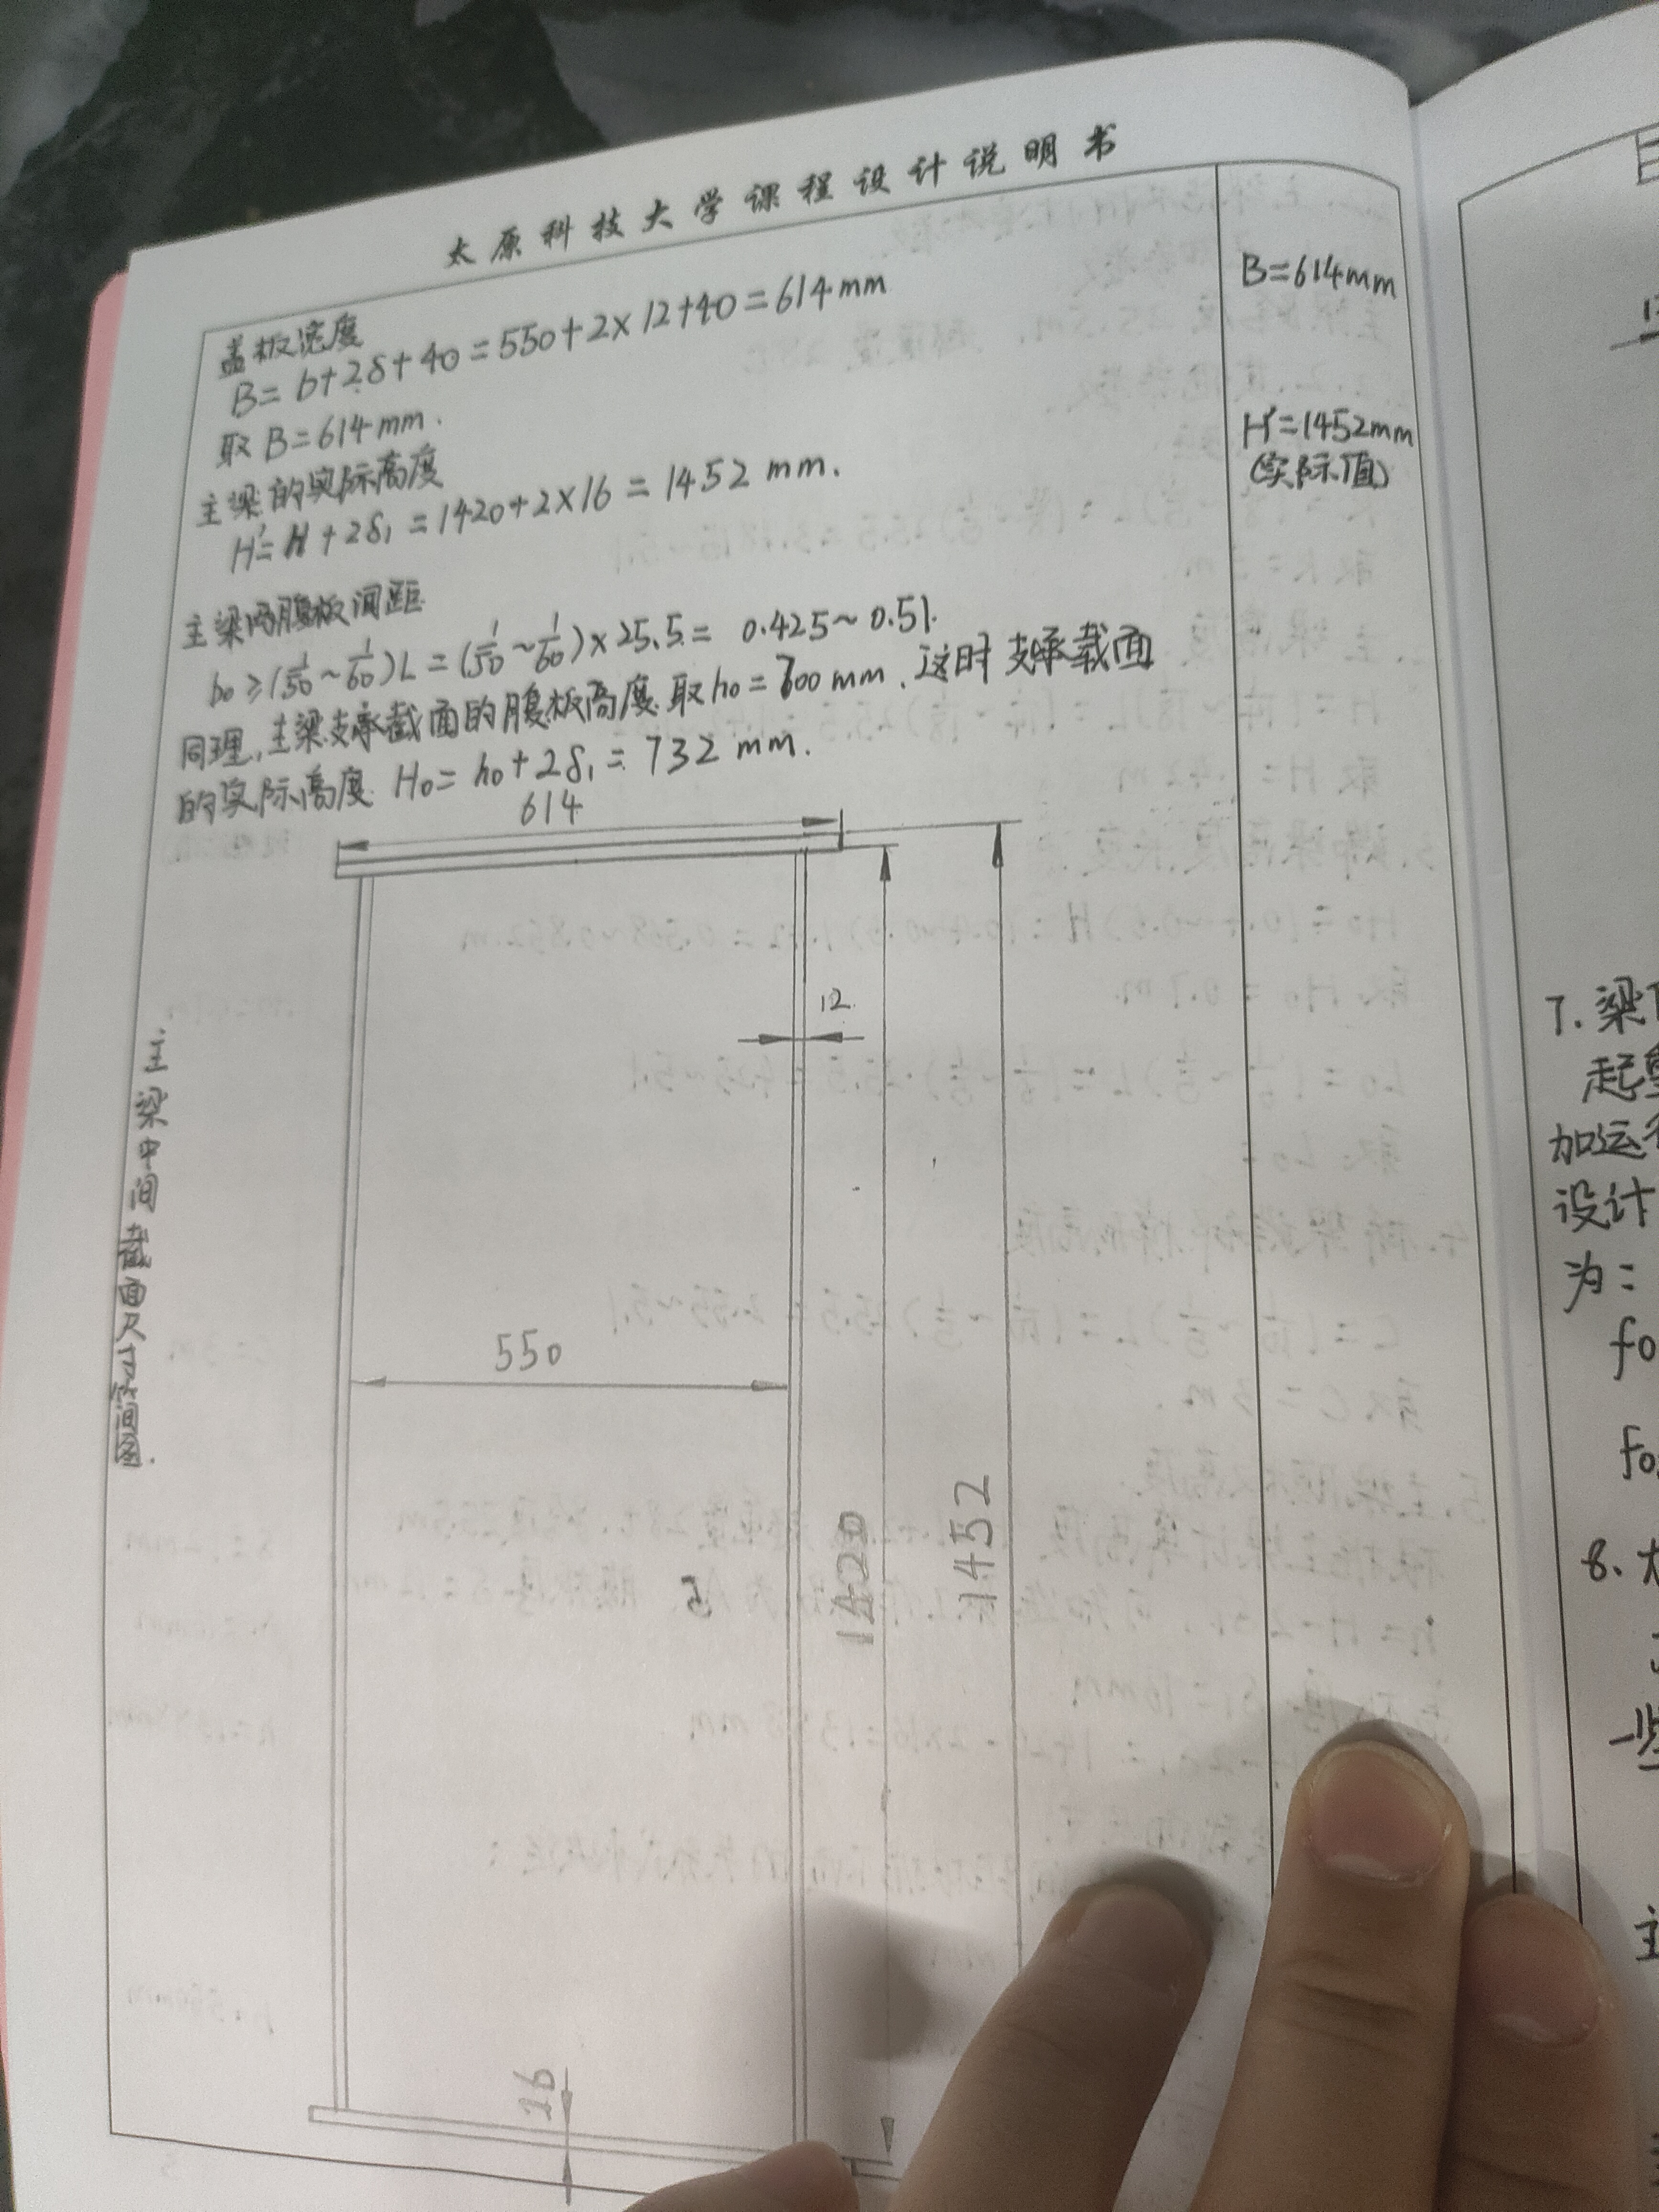 太原科技大学课程设计说明书
盖板宽度
B=b+2δ+40=550+2×12+40=614mm
取B=614mm.
主梁的实际高度
H'=H+2δ₁=1420+2×16=1452mm.
主梁两腹板间距
b₀≥(1/50~1/60)L=(1/50~1/60)×25.5=0.425~0.51.
同理,主梁支承截面的腹板高度取h₀=700mm.这时支承截面
的实际高度H₀=h₀+2δ₁=732mm.
B=614mm
H'=1452mm
(实际值)
614
12
550
1420
1452
16
主梁中间截面尺寸简图.
7.梁
起重
加运行
设计
为:
fo
fo
8.
一些
主